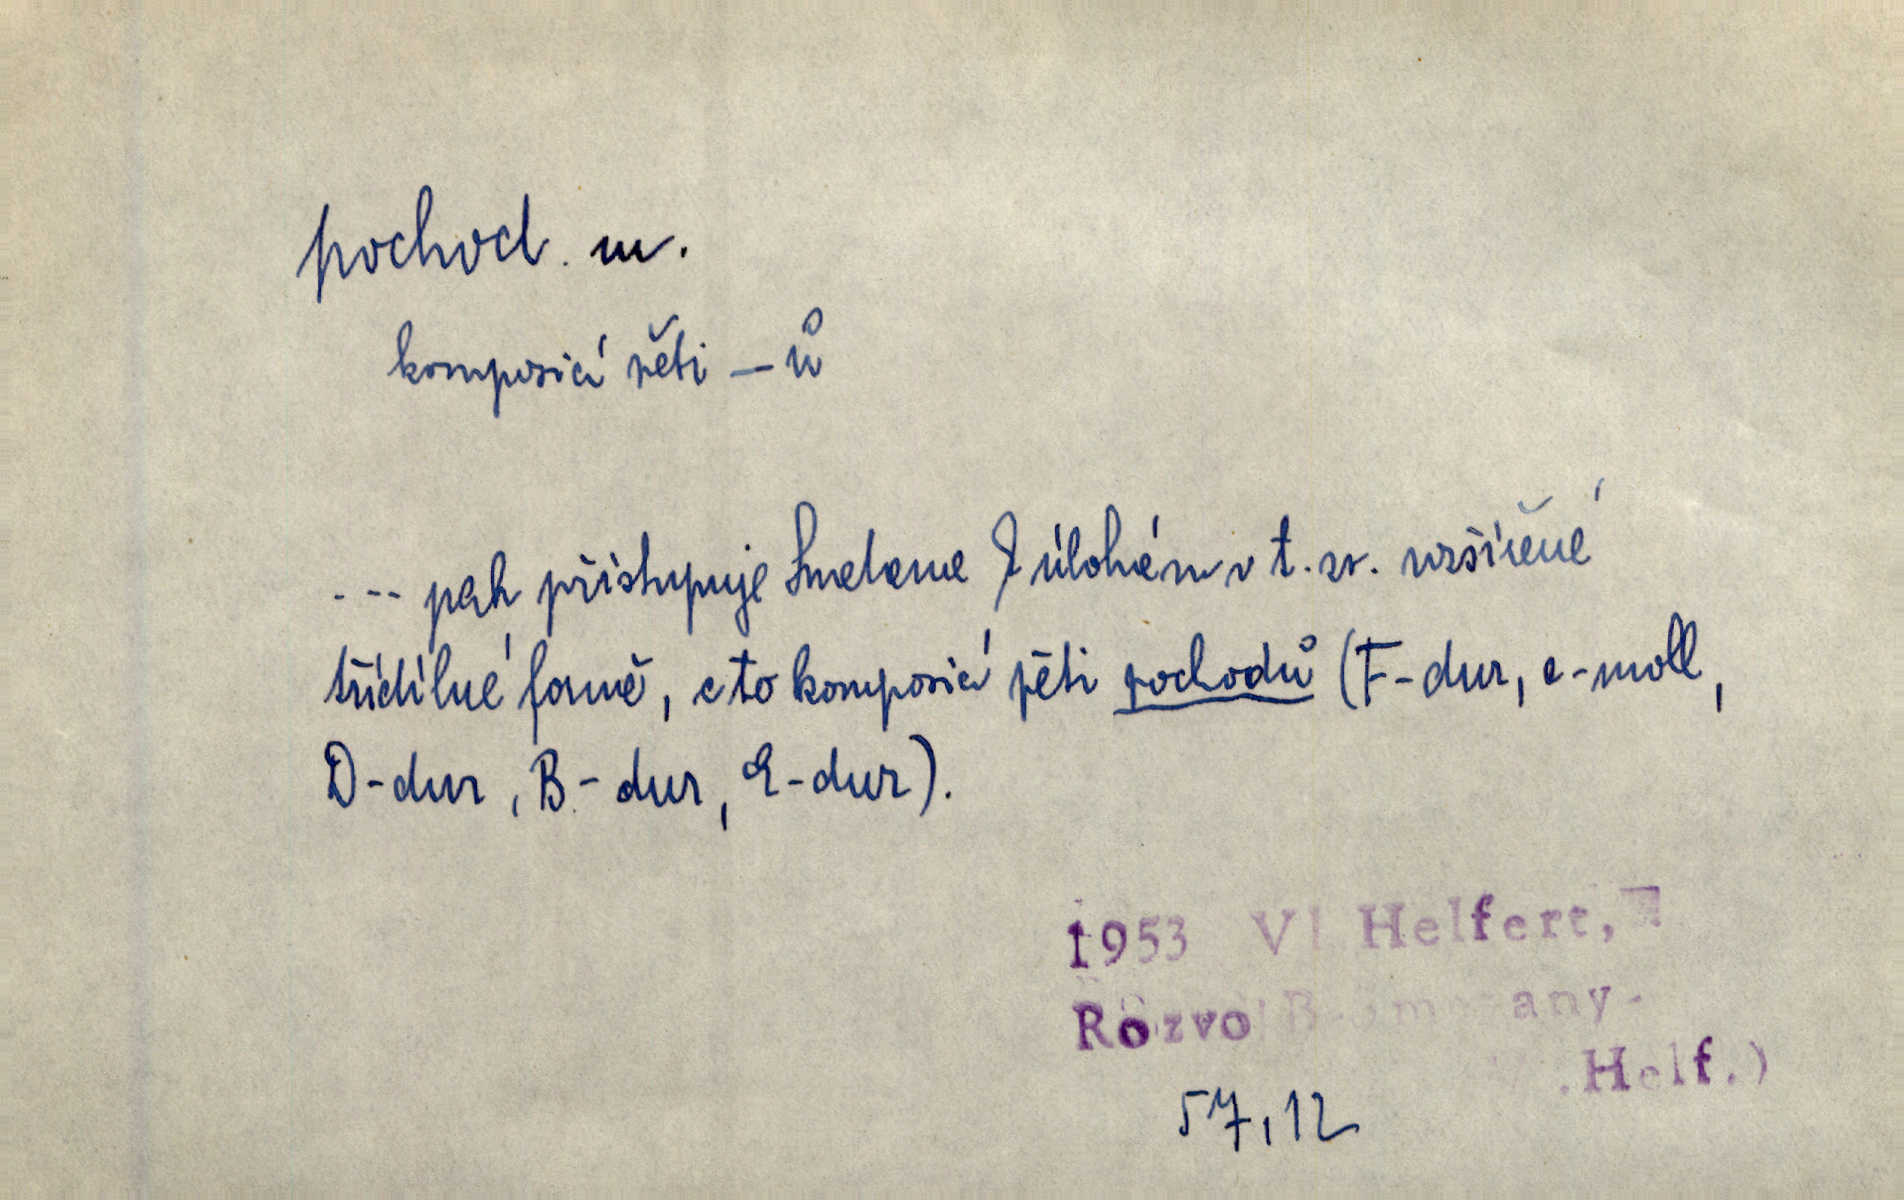 pochod. m.
komposicí pěti – ů
--- pak přistupuje Smetana k úlohám v t. zv. rozšířené
třídílné formě, a to komposicí pěti pochodů (F-dur, c-moll,
D-dur, B-dur, E-dur).
1953 Vl Helfert,
Rozvo B. Smetany-
.Helf.)
57,12